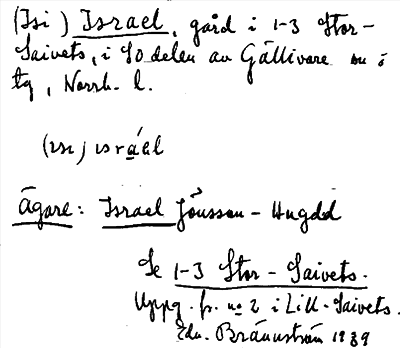 (Isi) Israel, gård i 1-3 Stor-
Saivets, i SO delen av Gällivare
tg, Norrb. l.
(ısı) ısráel
Ägare: Israel Jönsson-Hugdd
Se 1-3 Stor-Saivets.
Uppg. fr. no 2 i Lill-Saivets.
Edv. Brännström 1939